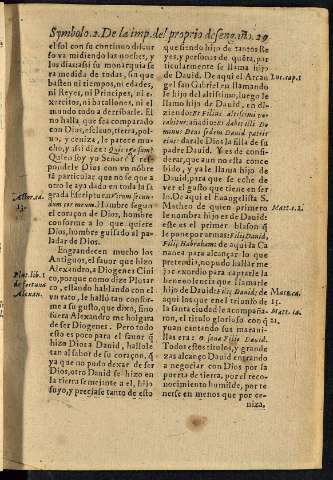 Symbolo.2. De la imp. del proprio deseng.ño. 29
el sol con su continuo discur
so va midiendo las noches, y
los dias assi su monarquia se
ra medida de todas, sin que
basten ni tiempos, ni edades,
ni Reyes, ni Principes, ni e-
xercitos, ni batallones, ni el
mundo todo a derribarle. El
no halla que sea comparado
con Dios, esclauo, tierra, pol-
uo, y ceniza, le parece mu-
cho, y assi dize:
Quien soy yo Señor? Y res-
pondele Dios con vn nõbre
tã particular que no se que a
otro le aya dado en toda la sa
grada Escriptura: Virum secun-
dum cor meum. Hombre segun
el coraçon de Dios, hombre
conforme a lo que quiere
Dios, hombre guisado al pa-
ladar de Dios.
Engrandecen mucho los
Antiguos, el fauor que hizo
Alexandro, a Diogenes Cini
co, porque como dize Plutar
co, estando hablando con el
vn rato, le hallò tan confor-
me a su gusto, que dixo, sino
fuera Alexandro me holgara
de ser Diogenes. Pero todo
esto es poco para el fauor q̃
hizo Dios a Dauid, hallole
tan al sabor de su coraçon, q̃
ya que no pudo dexar de ser
Dios, otro Dauid se hizo en
la tierra semejante a el, hijo
suyo, y preciase tanto de esto
Actor. ca.
13.
Plut. lib. 1.
de fortuna
Alexan.
que siendo hijo de tantos Re
yes, y personas de quẽta, par-
ticularmente se llama hijo
de Dauid. De aqui el Arcan
gel san Gabriel en llamando
le hijo del altissimo, luego le
llamo hijo de Dauid, en di-
ziendo: Et Filius altissimi vo-
cabitur; añadio: & dabit illi Do
minus Deus sedem Dauid patris
eius: darale Dios la silla de su
padre Dauid. Y es de consi-
derar, que aun no esta conce
bido, y ya le llama hijo de
Dauid, para que se eche de
ver el gusto que tiene en ser
lo. De aqui el Euangelista S.
Matheo de quien primero
le nombra hijo es de Dauid:
este es el primer blason q̃
le pone por armas: Filij Dauid,
Filij Habraham: de aqui la Ca
nanea para alcançar lo que
pretendia, no pudo hallar me
jor exordio para captarle la
beneuolencia que llamarle
hijo de Dauid: Filij Dauid; de
aqui los que en el triunfo de
la santa ciudad le acompaña-
ron, el titulo glorioso con q̃
yuan cantando sus maraui-
llas era: O sana Filio Dauid.
Todos estos titulos, y grande
zas alcançò Dauid entrando
a negociar con Dios por la
puerta de tierra, por el reco-
nocimiento humilde, por te
nerse en menos que por ce-
niza,
Luc. cap. 1
Matt. c. 1.
Matt. ca.
15.
Matt. ca.
21.